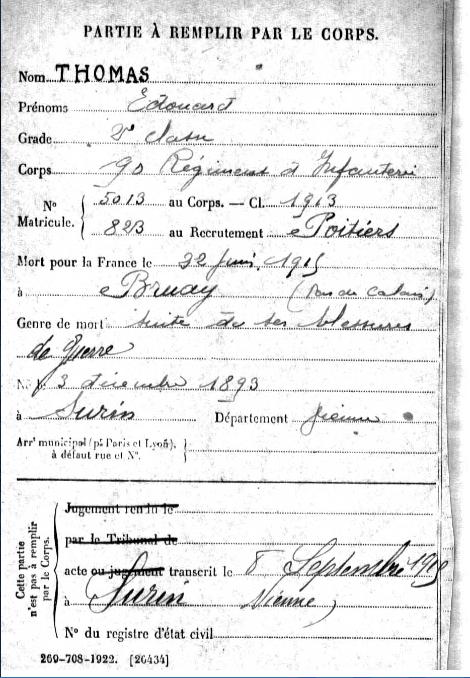 PARTIE À REMPLIR PAR LE CORPS.
Nom THOMAS
Prénoms Edouard
Grade 2e classe
Corps 90 Régiment d'Infanterie
N° Matricule. { 5013 au Corps. — Cl. 1913
823 au Recrutement Poitiers
Mort pour la France le 22 juin 1915
à Bruay (Pas de Calais)
Genre de mort suite de ses blessures
de guerre
Né le 3 décembre 1893
à Surin Département Vienne
Arrt municipal (pr Paris et Lyon), }
à défaut rue et N°.
Cette partie n'est pas à remplir par le Corps.
Jugement rendu le
par le Tribunal de
acte ou jugement transcrit le 8 Septembre 1915
à Surin Vienne)
N° du registre d'état civil
269-708-1922. [26434]